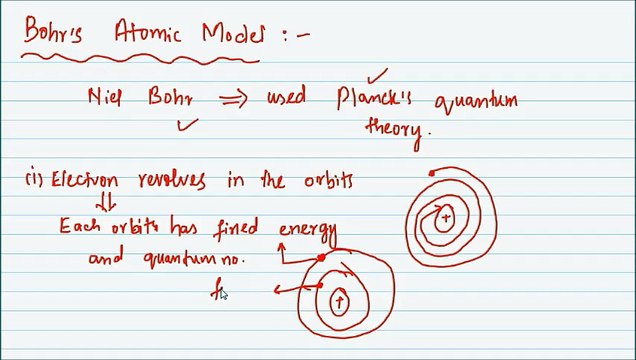 Bohr's Atomic Model :-
Niel Bohr ⇒ used Planck's quantum
theory.
(i) Electron revolves in the orbits
Each orbits has fixed energy
and quantum no.
+
+